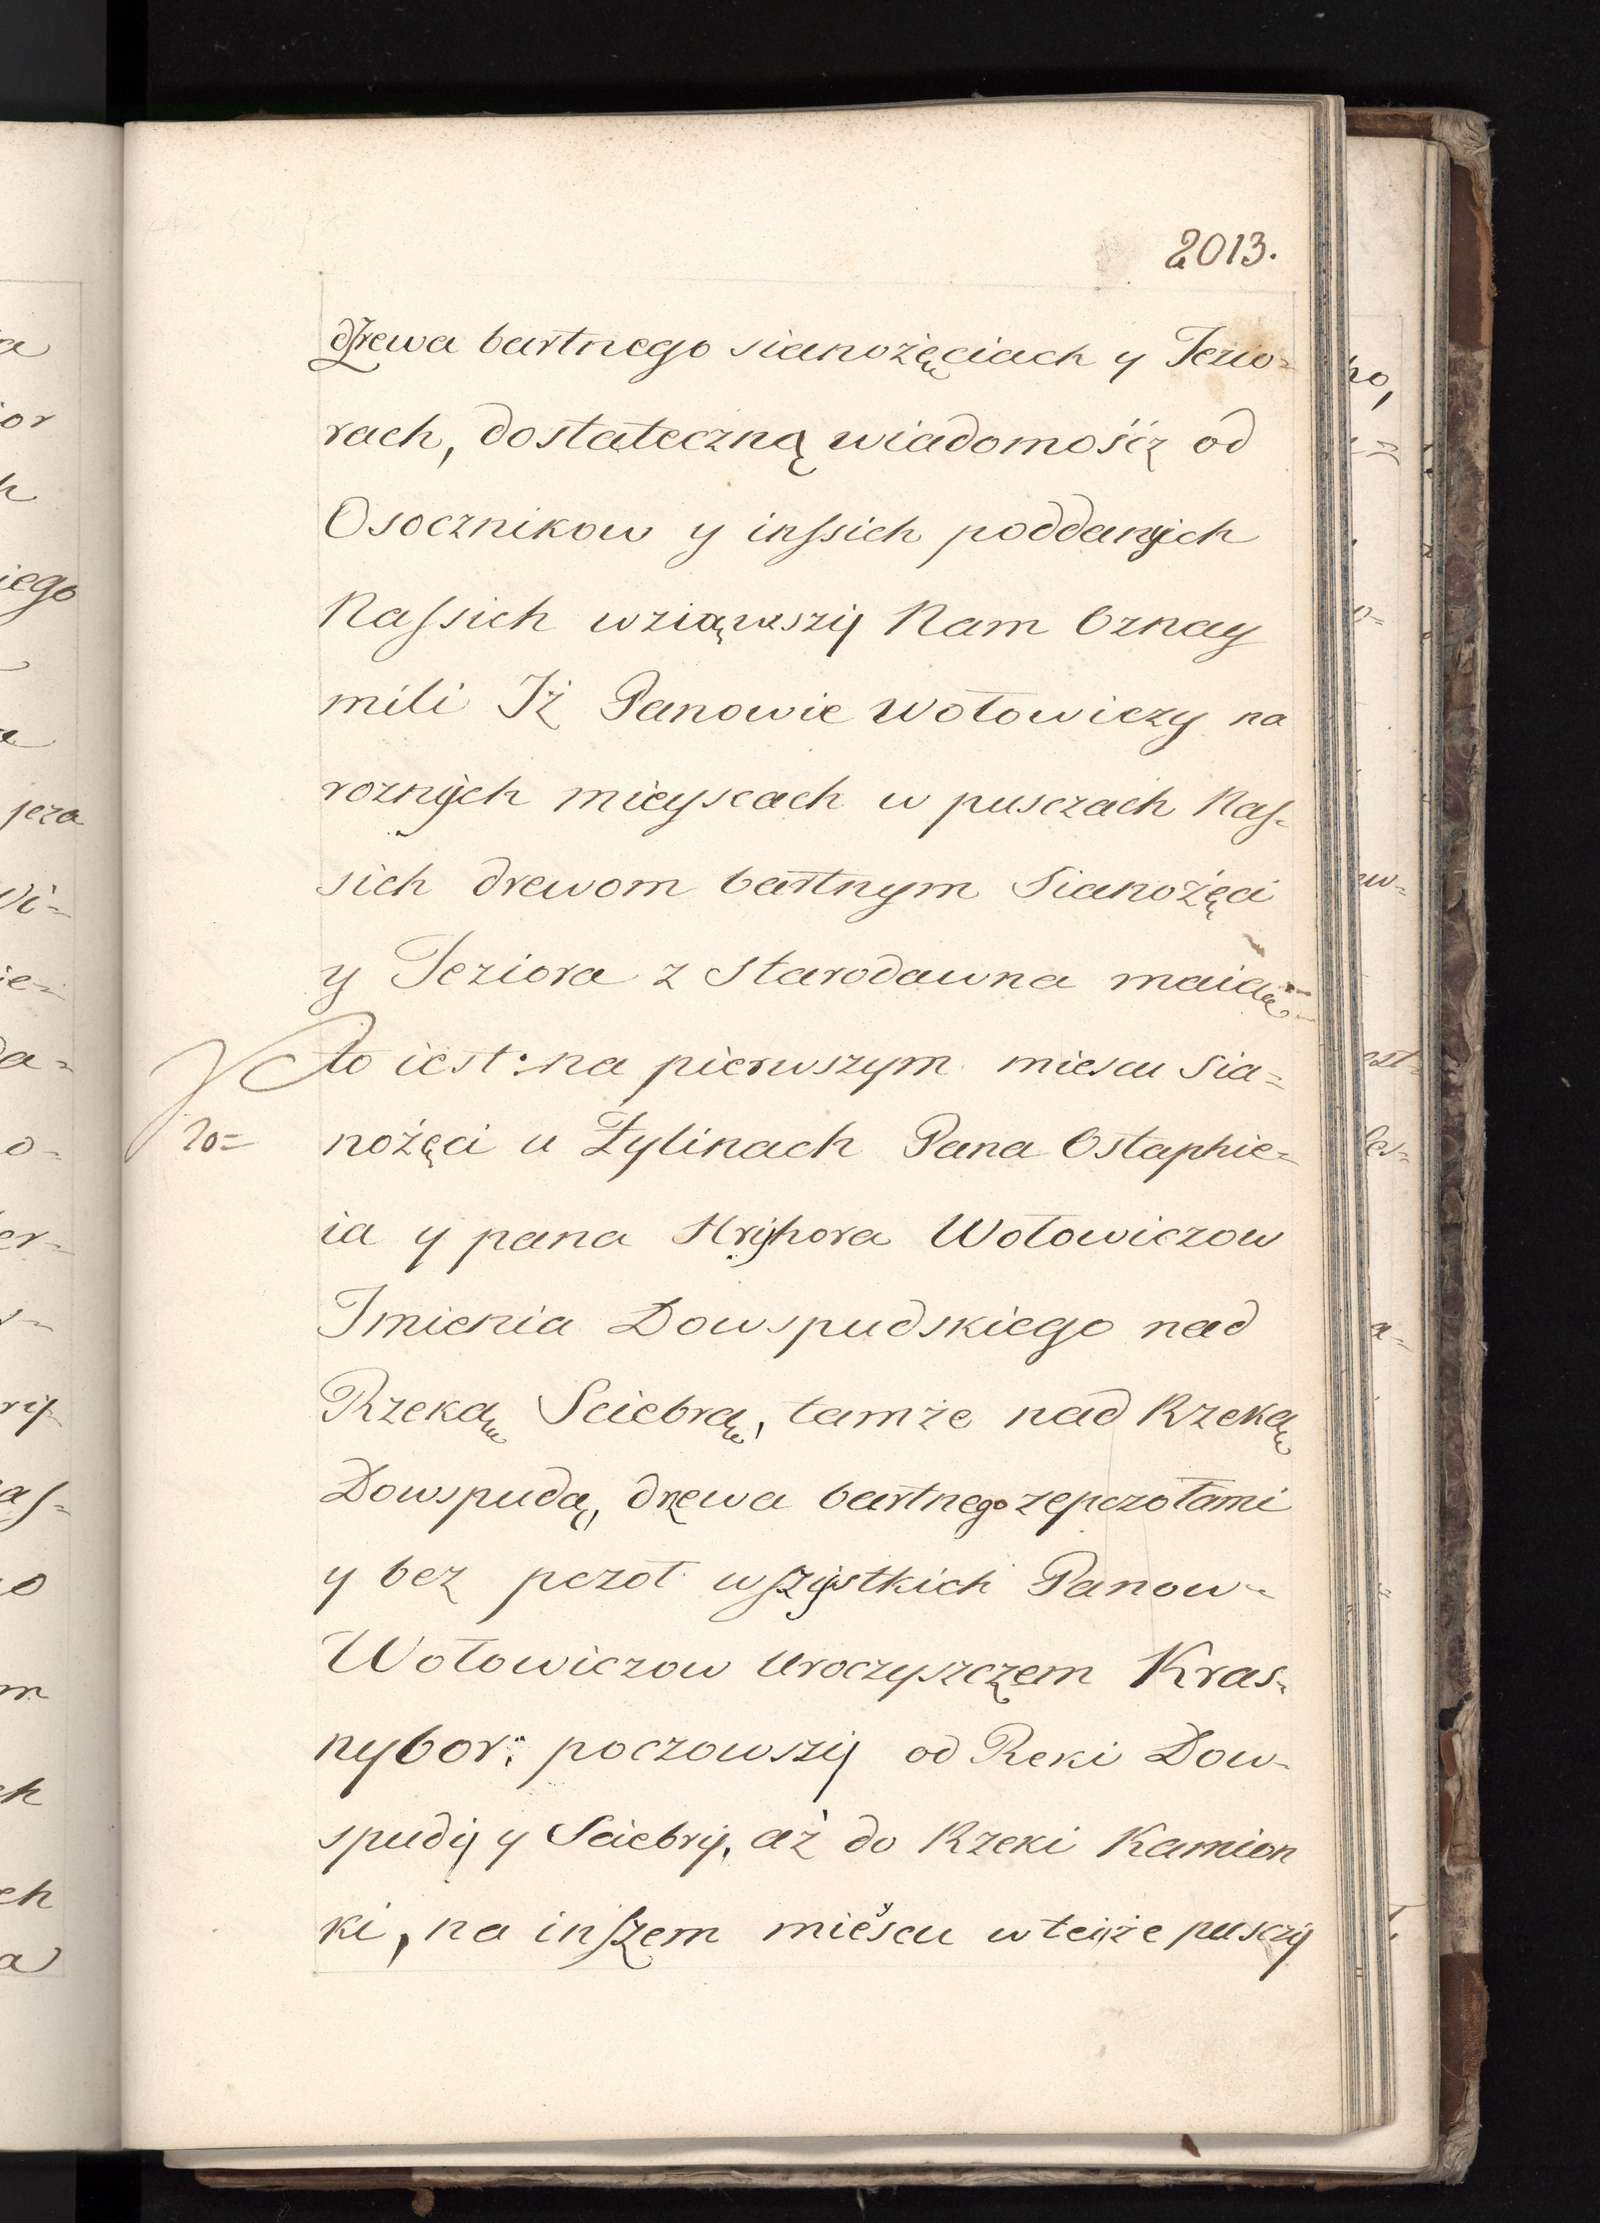 2013.
drzewa bartnego sianożęciach y Jezio-
rach, dostateczną wiadomość od
Osocznikow y inszich poddanÿch
Naszich wziąwszÿ Nam Oznay
mili Jż Panowie Wołowiczy na
roznÿch mieyscach w pusczach Nas-
sich drewom bartnym Sianożęci
y Jeziora z Starodawna maią
to iest: na pierwszym miescu Sia=
20= nożęci u Żylinach Pana Ostaphie=
ia y pana Hrÿhora Wołowiczow
Jmienia Dowspudskiego nad
Rzeką Sciebrą, tamże nad Rzeką
Dowspudą, drzewa bartnego zepczołami
y bez pczoł wszÿstkich Panow-
Wołowiczow Uroczyszczem Kras-
nybor: poczowszÿ od Reki Dow-
spudÿ y Sciebrÿ, aż do Rzeki Kamion
ki, na inszem mieścu w teÿże pusczÿ
a
ior
h
iego
jeza
Wi-
ie-
da-
o-
er-
as-
o
m
ch
ch
a